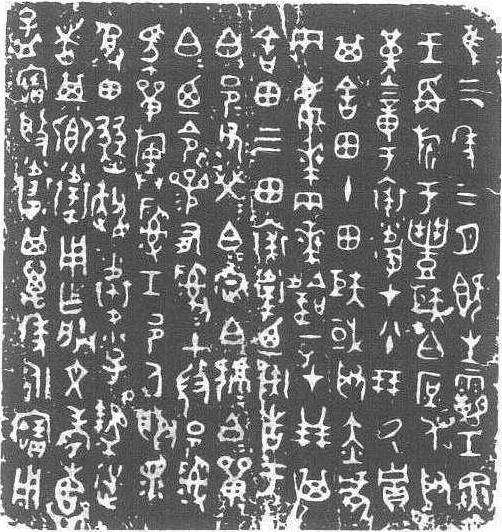 隹三年三月既生霸壬寅
王爯旂于豐矩白庶人取
堇章于裘衛才八十朋氒
貯其舍田十田矩或取赤
虎兩𠦪兩𠦪韐一才廿朋其
舍田三田裘衛乃彘告于
白邑父榮白定白𤔲白單
白乃令參有𤔲𤔲土微邑𤔲
馬單旟𤔲工邑人服眔
受田燹趞衛小子逆
者其鄉衛用乍朕文考惠
孟寶般衛其萬年永寶用